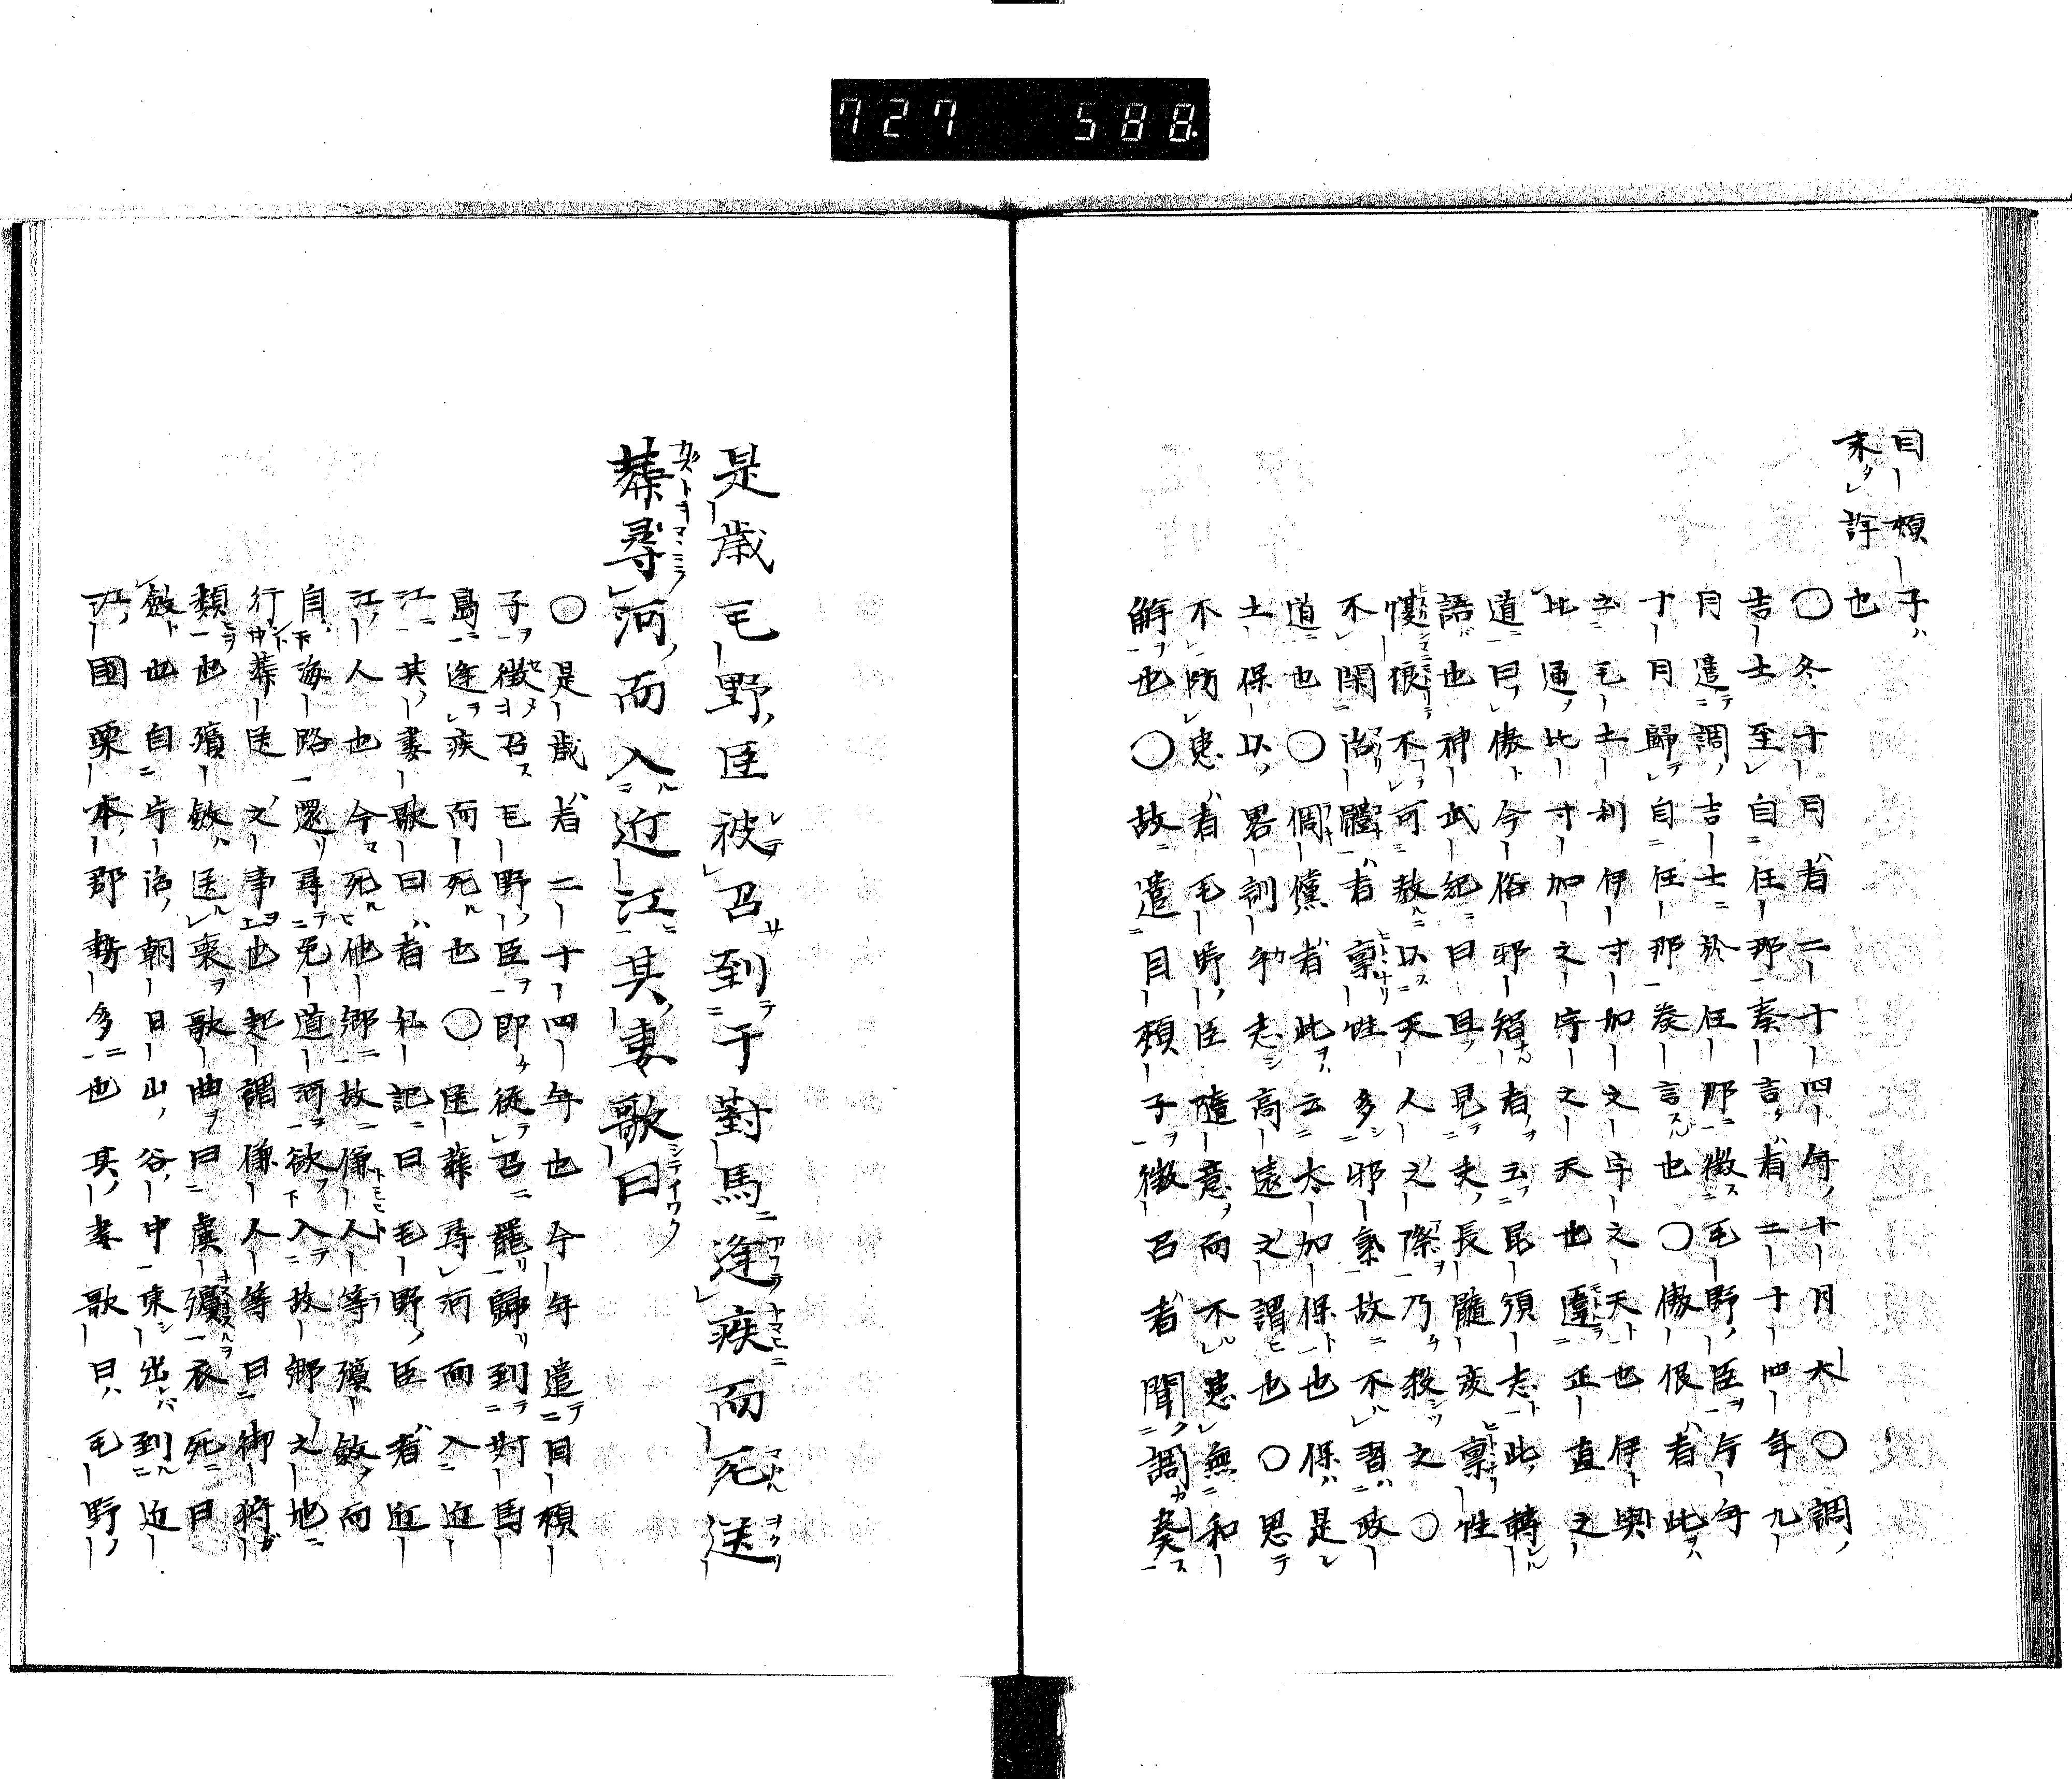 727 588.
目頰子
未許也
〇冬十月者二十四年十月大〇調
吉士至自任那奏言者二十四年九
月遣調吉士於任那徴毛野臣今年
十月歸自任那奏言也〇傲佷者此
云毛士利伊寸加之宇之天也伊與
比通比寸加之宇之天也遑正直之
道曰傲今俗邪智者云昆須志此轉
語也神武紀曰且見夫長髓彦禀性
愎狠不可教以天人之際乃殺之〇
不閑治體者禀性多邪氣故不習政
道也〇倜儻者此云太加保也保是
土保以畧訓乎志高遠之謂也〇思
不防患者毛野臣隨意而不患無和
解也〇故遣目頰子徴召者聞調奏
是歳毛野臣被召到于對馬逢疾而死送
葬尋河而入近江其妻歌曰
〇是歳者二十四年也今年遣目頰
子徴召毛野臣即從召罷歸到對馬
島逢疾而死也〇送葬尋河而入近
江其妻歌曰者私記曰毛野臣者近
江人也今死他郷故傔人等殯斂而
自海路還尋兎道河欲入故郷之地
行葬送之事也起謂傔人等曰御狩
類也殯斂送喪歌曲曰虞殯衣死曰
斂也自宇治朝日山谷中東出到近
江國栗本郡勢多也其妻歌曰毛野